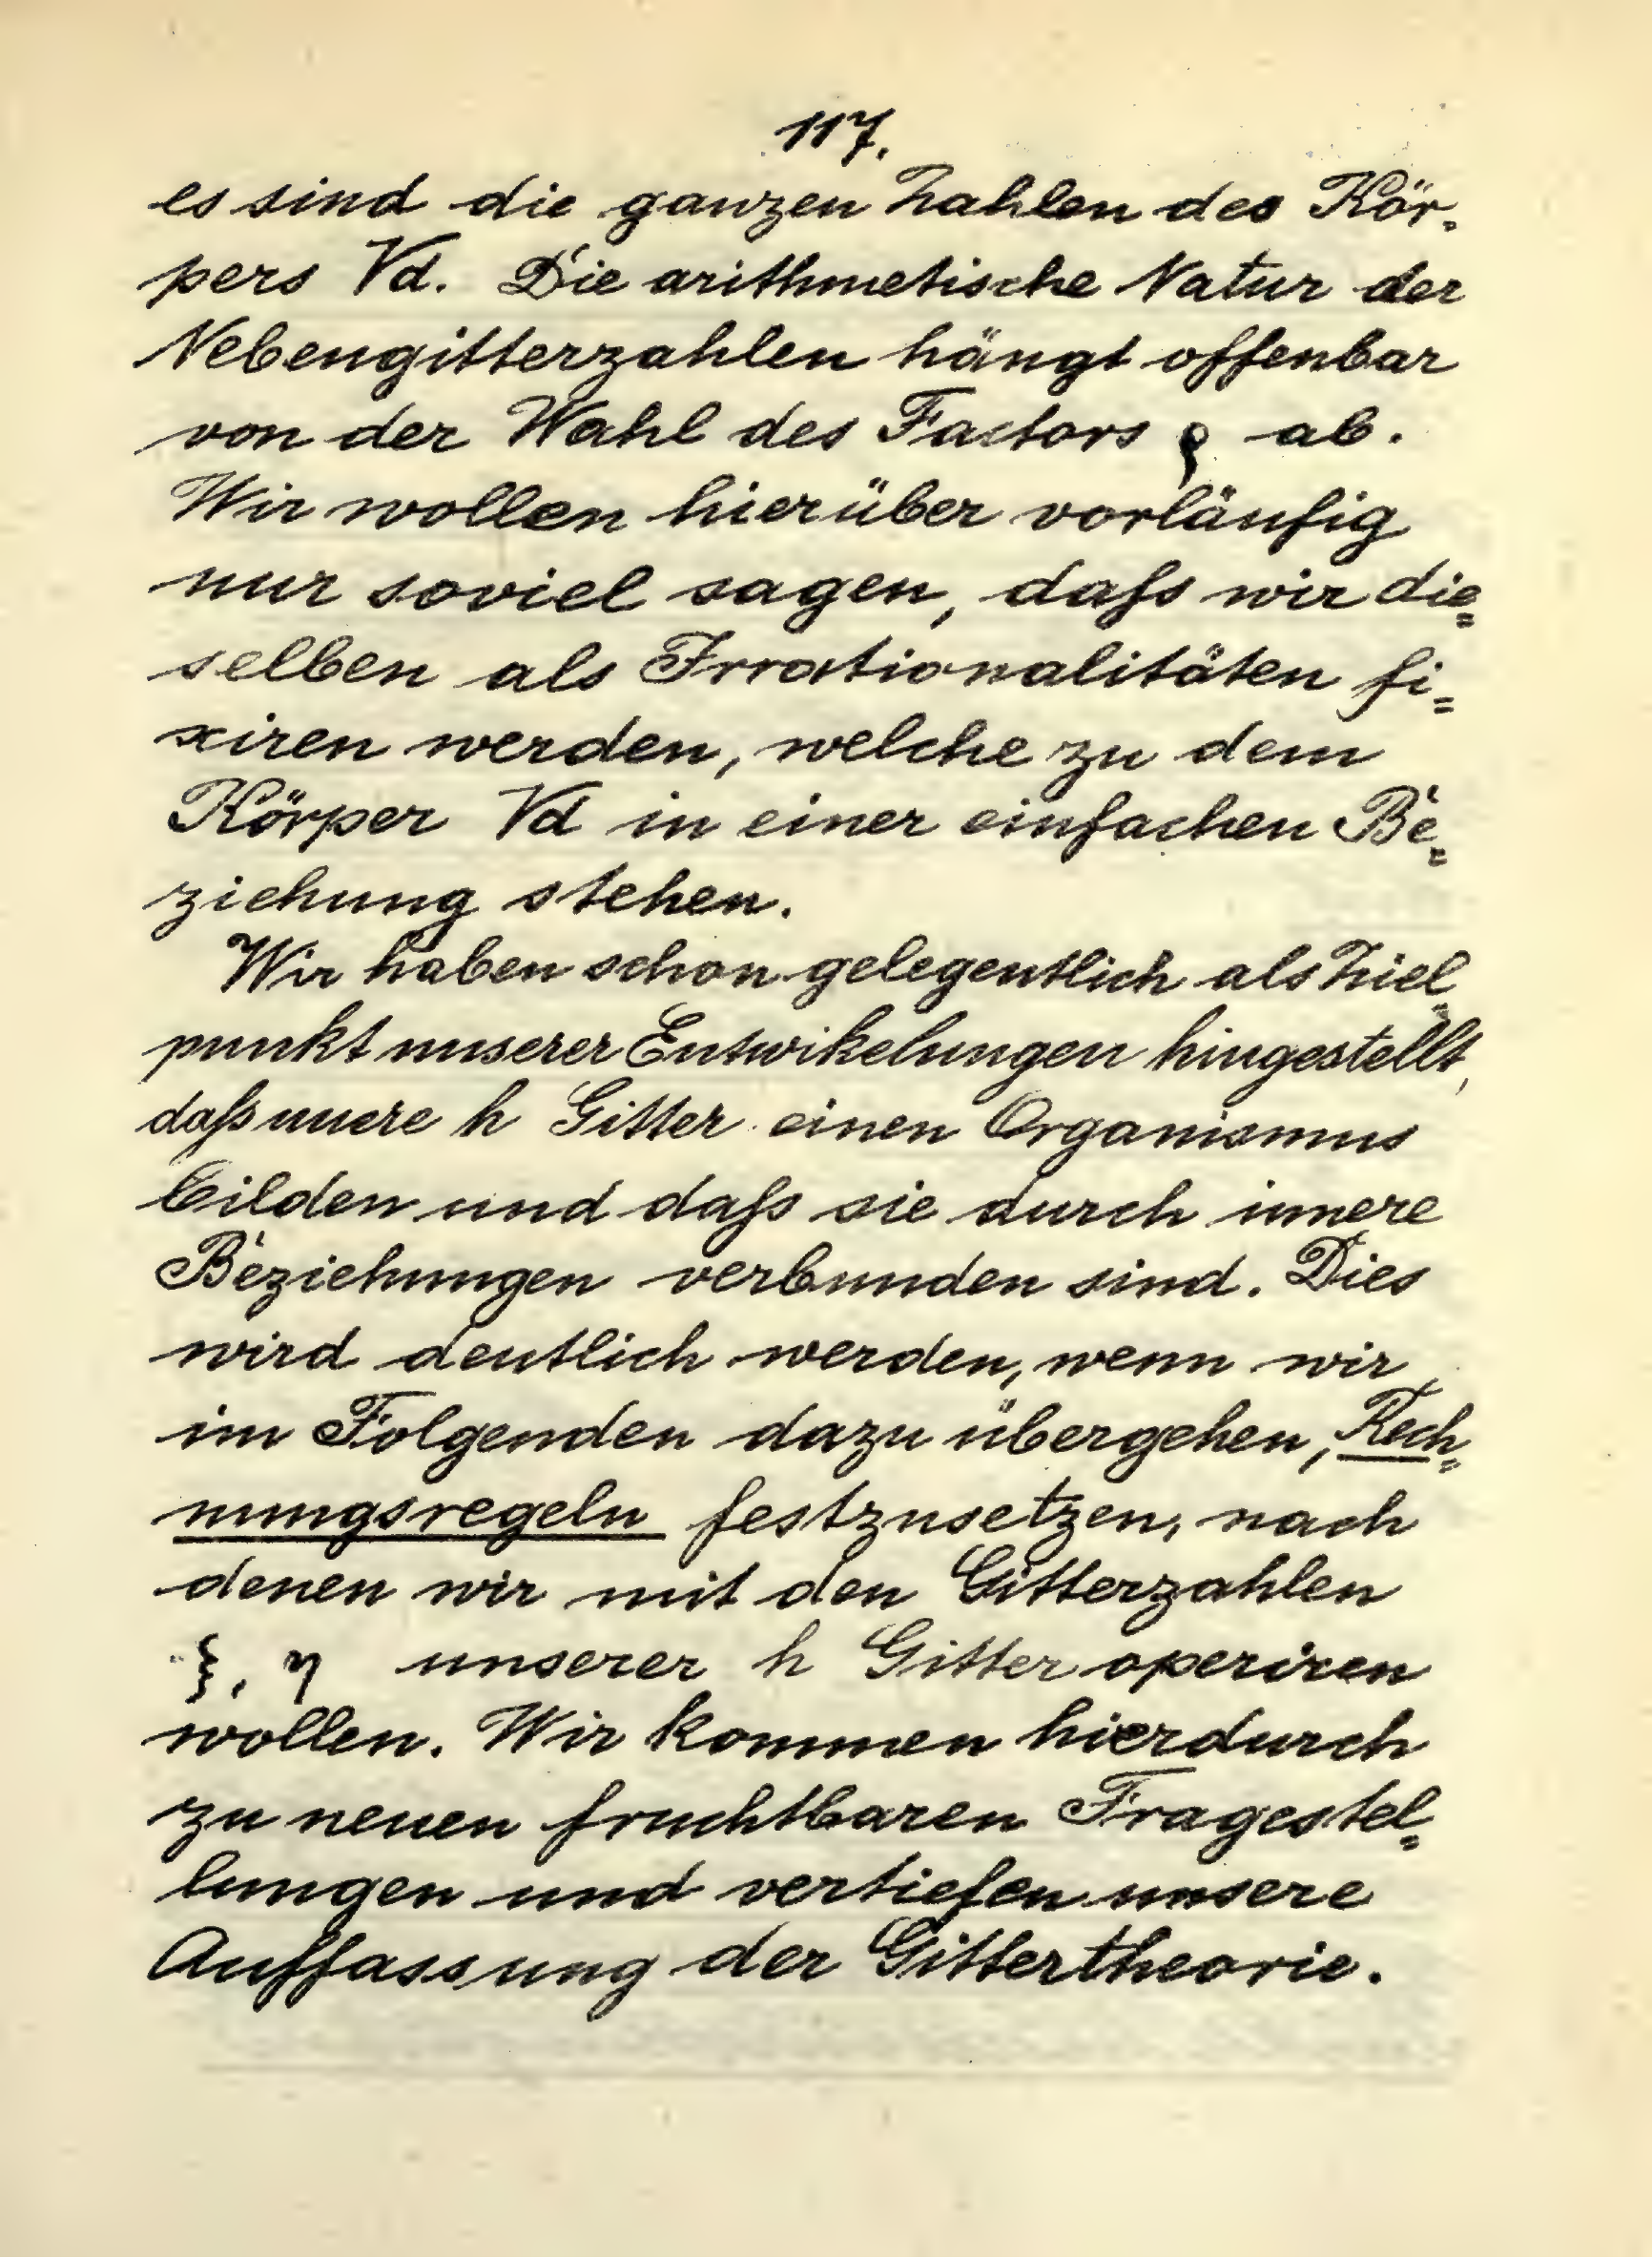 117.
es sind die ganzen Zahlen des Kör-
pers √d. Die arithmetische Natur der
Nebengitterzahlen hängt offenbar
von der Wahl des Factors ϱ ab.
Wir wollen hierüber vorläufig
nur soviel sagen, daſs wir die=
selben als Irrationalitäten fi=
xiren werden, welche zu dem
Körper √d in einer einfachen Be=
ziehung stehen.
Wir haben schon gelegentlich als Ziel=
punkt unserer Entwikelungen hingestellt,
daſs unere h Gitter einen Organismus
bilden und daſs sie durch innere
Beziehungen verbunden sind. Dies
wird deutlich werden, wenn wir
im Folgenden dazu übergehen, Rech=
nungsregeln festzusetzen, nach
denen wir mit den Gitterzahlen
ξ, η unserer h Gitter operiren
wollen. Wir kommen hierdurch
zu neuen fruchtbaren Fragestel=
lungen und vertiefen unsere
Auffassung der Gittertheorie.